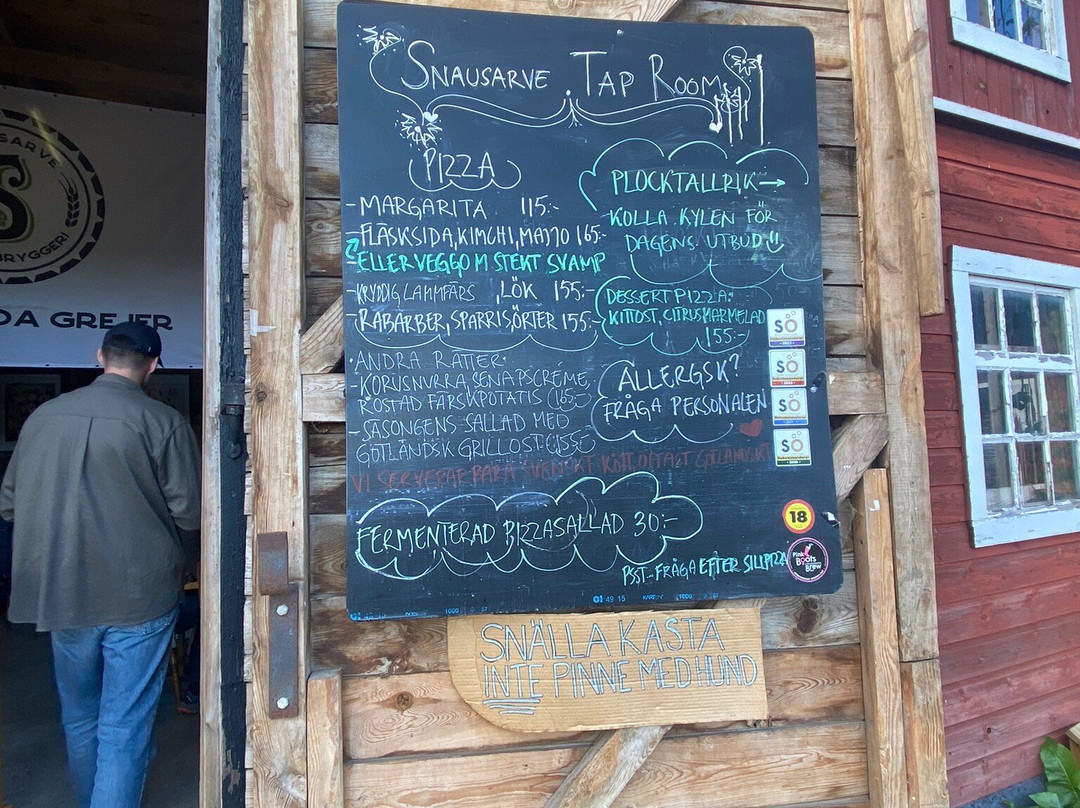 SNAUSARVE TAP ROOM
PIZZA
-MARGARITA 115:-
-FLÄSKSIDA, KIMCHI, MAJJO 165:-
ELLER VEGGO M STEKT SVAMP
-KRYDDIG LAMMFÄRS, LÖK 155:-
-RABARBER, SPARRIS, ÖRTER 155:-
·ANDRA RÄTTER·
-KORVSNURRA, SENAPSCREME,
ROSTAD FÄRSKPOTATIS (165:-)
-SÄSONGENS SALLAD MED
GOTLÄNDSK GRILLOST (155:-)
VI SERVERAR BARA SVENSKT KÖTT OFTAST GOTLÄNDSKT
FERMENTERAD PIZZASALLAD 30:-
PLOCKTALLRIK→
KOLLA KYLEN FÖR
DAGENS UTBUD
DESSERT PIZZA:
KITTOST, CITRUSMARMELAD
155:-
ALLERGISK?
FRÅGA PERSONALEN
SÖ
SÖ
SÖ
SÖ
18
Pink Boots
Brew
PSST-FRÅGA EFTER SILLPIZZA
SNÄLLA KASTA
INTE PINNE MED HUND
SARVE
S
BRYGGERI
DA GREJER